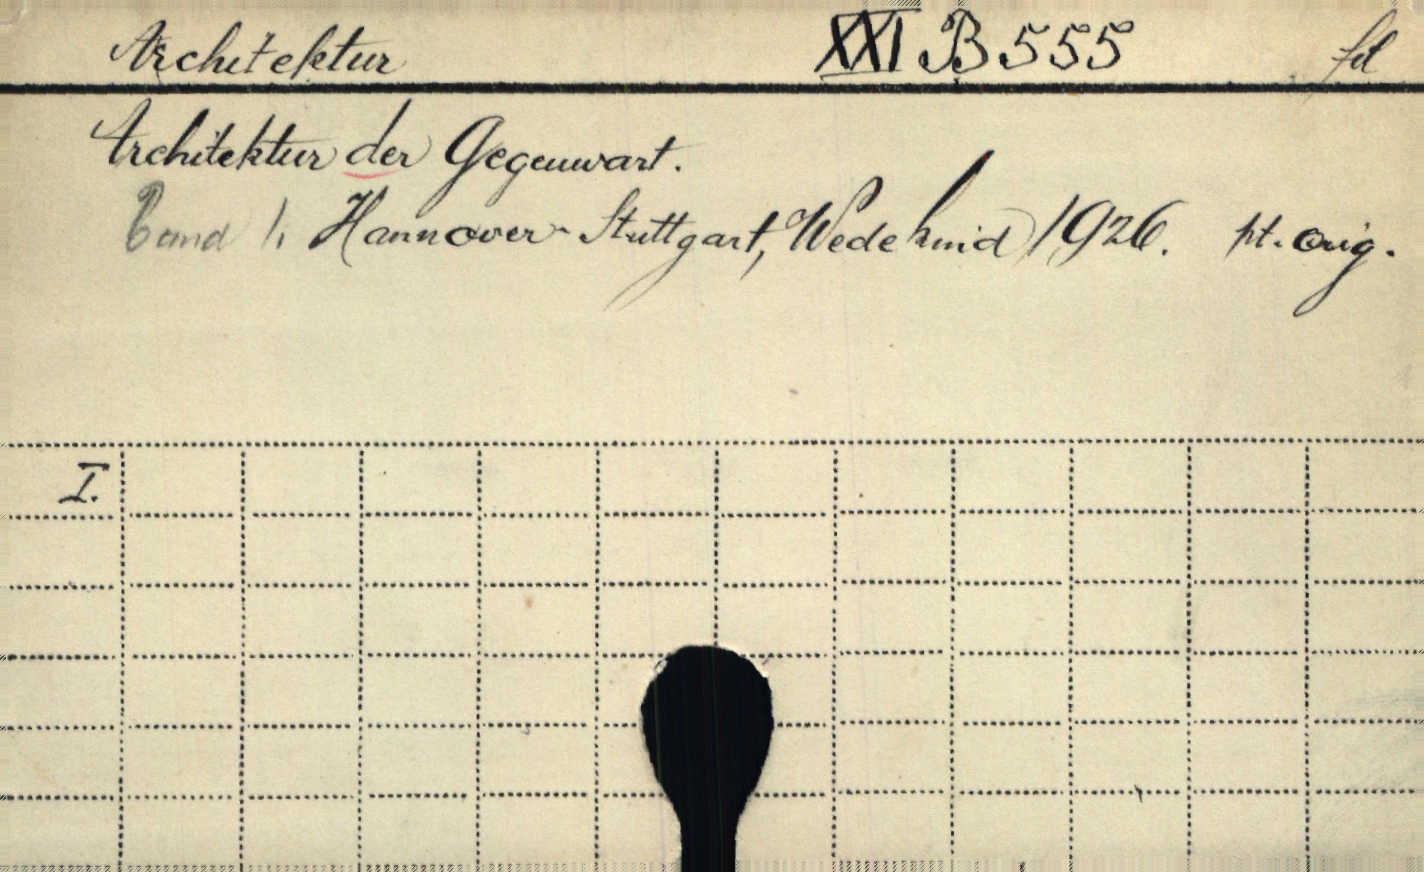 Architektur XXI B 555
Architektur der Gegenwart.
Band 1. Hannover-Stuttgart, Wedekind 1926. pt. orig.
I.